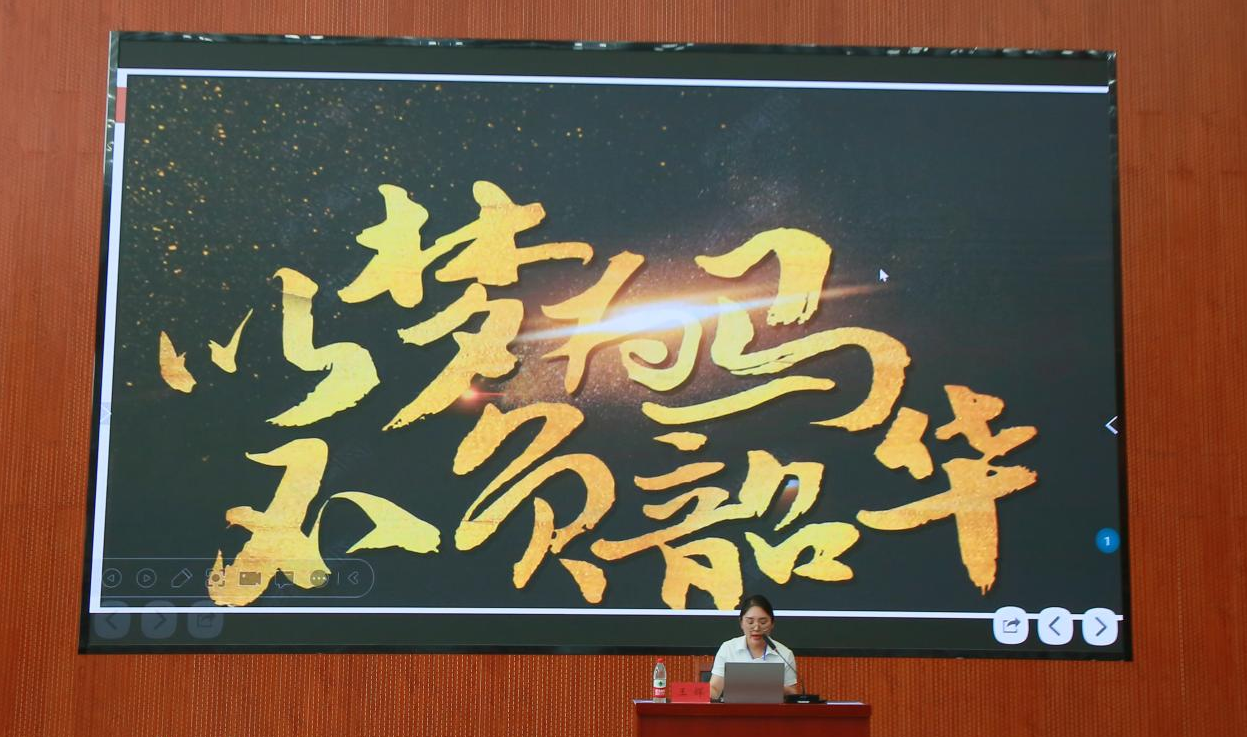 以梦为马
不负韶华
1